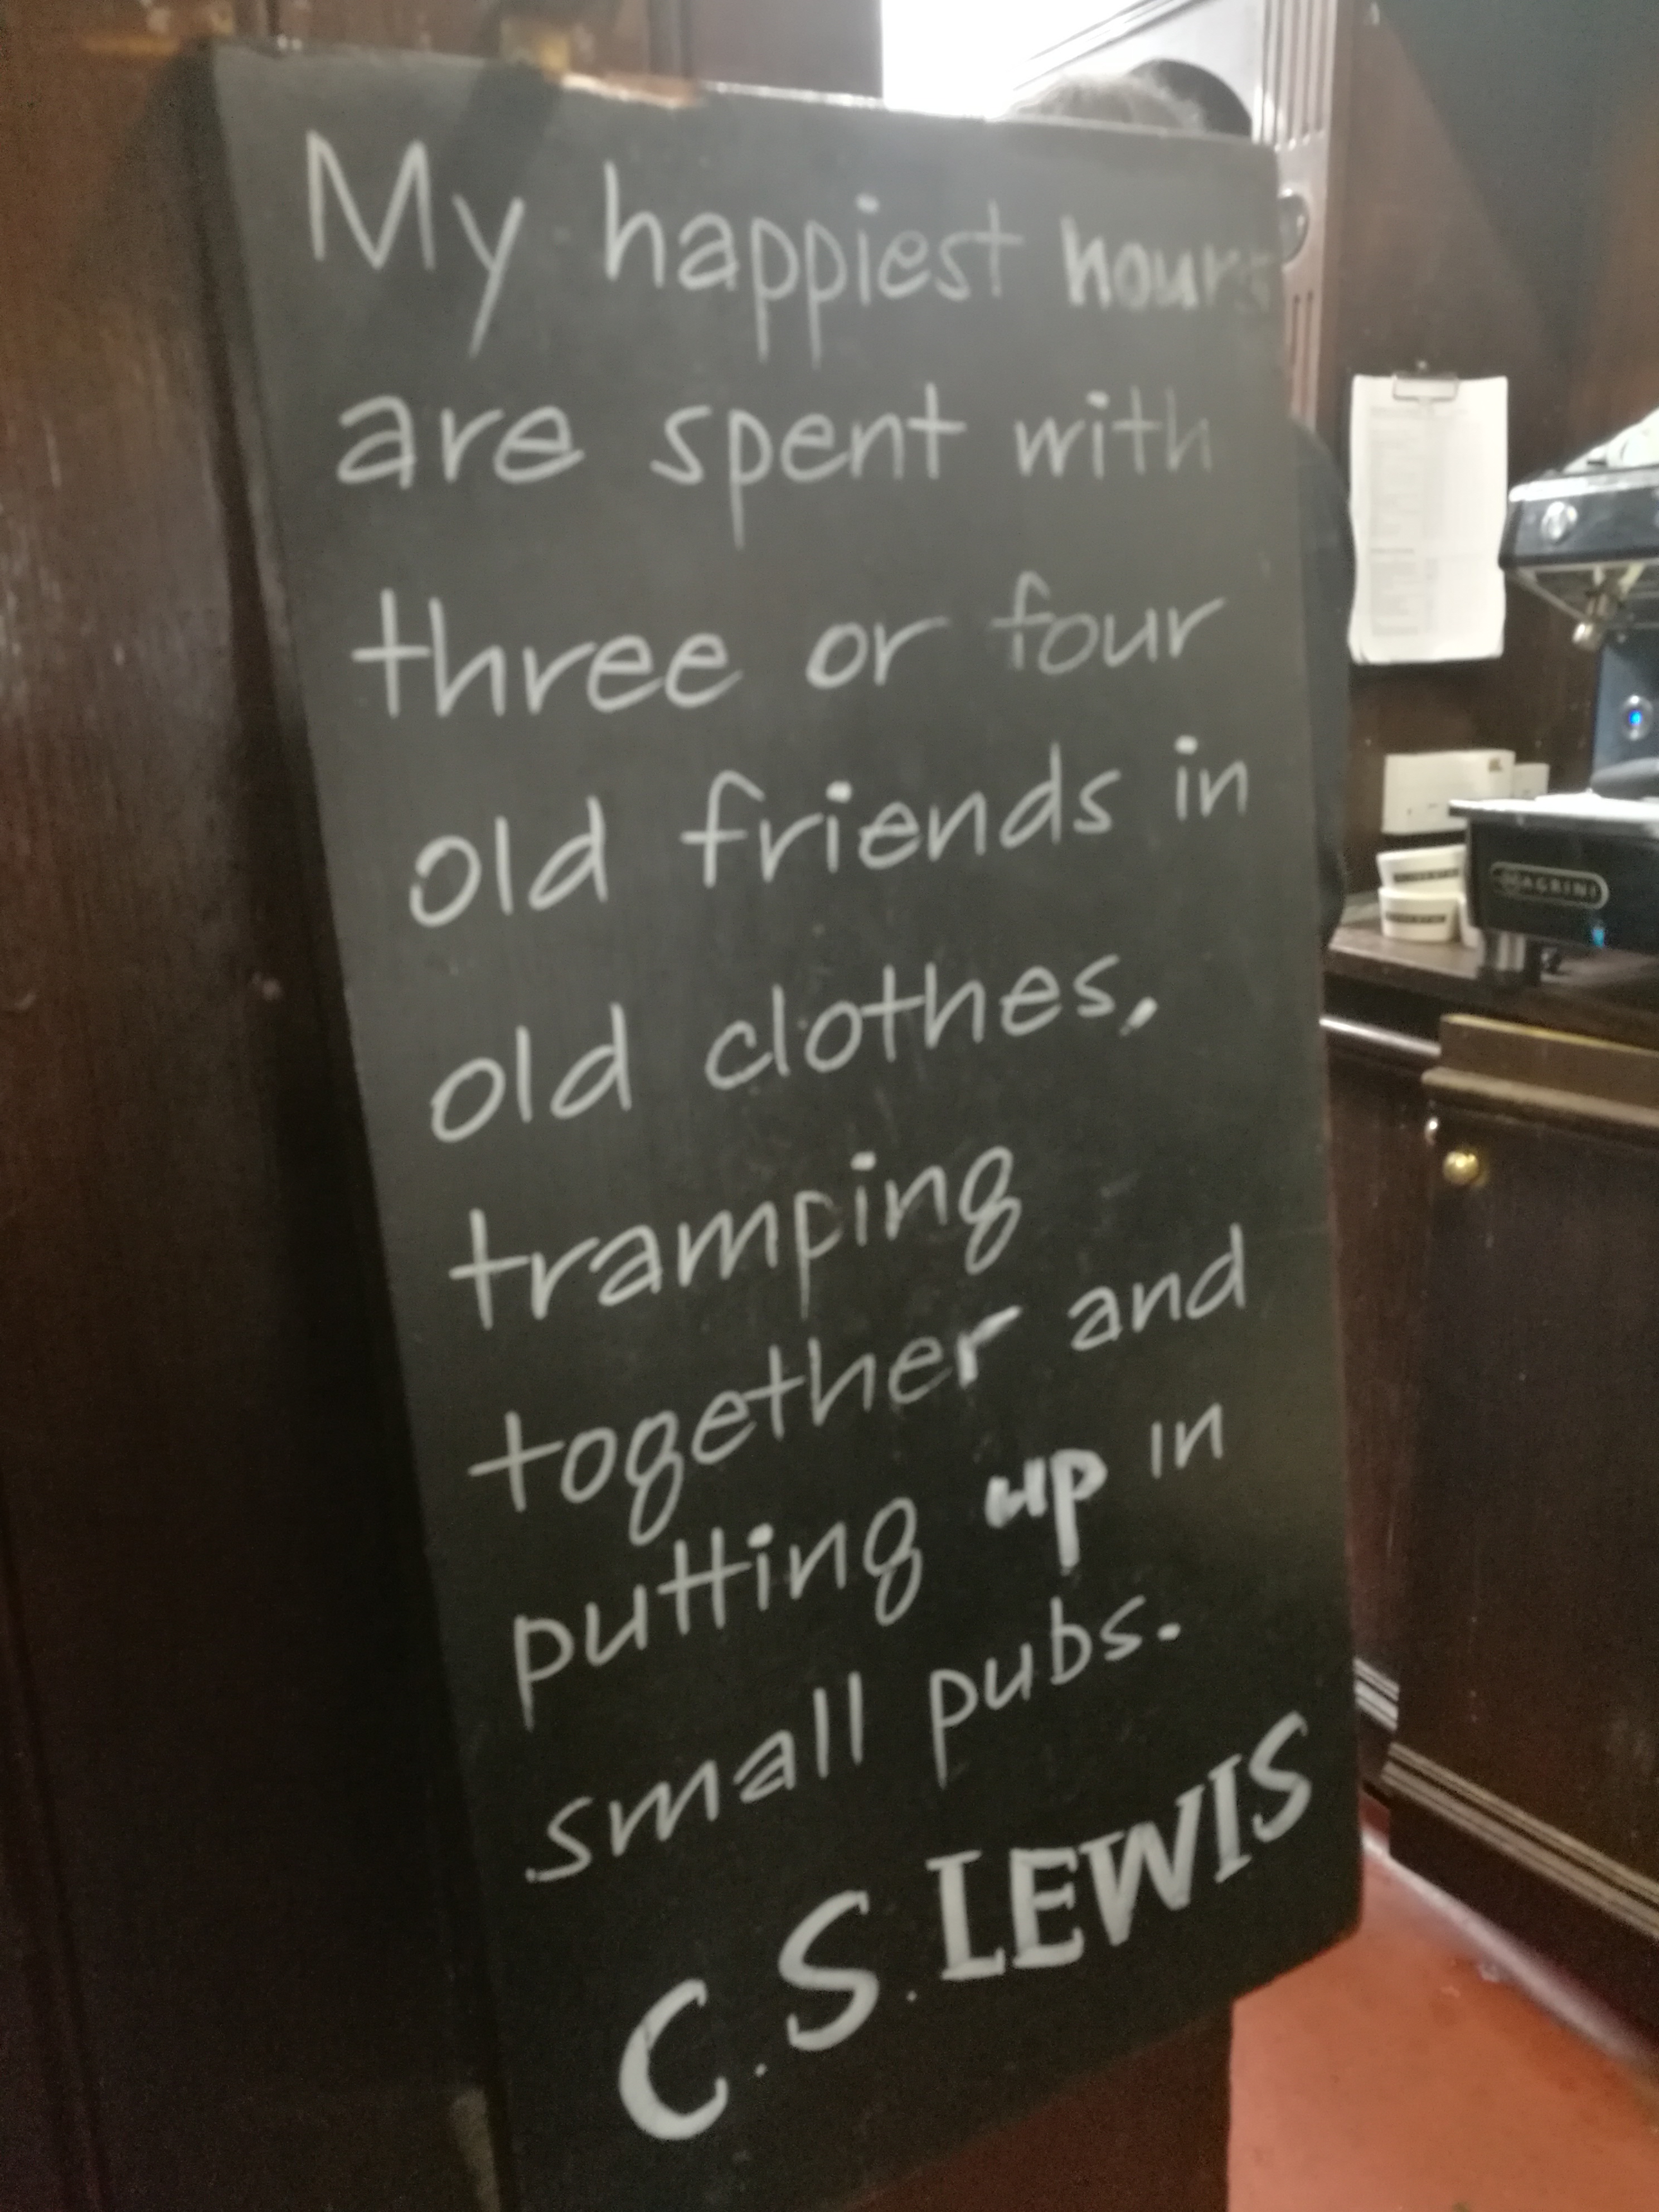 My happiest hours
are spent with
three or four
old friends in
old clothes,
tramping
together and
putting up in
small pubs.
C.S.LEWIS
MAGRINI